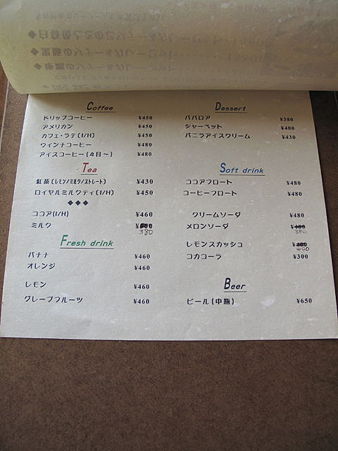 Coffee
ドリップコーヒー ¥450
アメリカン ¥450
カフェ・ラテ(I/H) ¥450
ウィンナコーヒー ¥480
アイスコーヒー(4月〜) ¥480
Tea
紅茶(レモン/ミルク/ストレート) ¥430
ロイヤルミルクティ(I/H) ¥450
◆◆◆
ココア(I/H) ¥460
ミルク
Fresh drink
バナナ ¥460
オレンジ ¥460
レモン ¥460
グレープフルーツ ¥460
Dessert
ババロア ¥380
シャーベット ¥400
バニラアイスクリーム ¥430
Soft drink
ココアフロート ¥480
コーヒーフロート ¥480
クリームソーダ ¥480
メロンソーダ
レモンスカッシュ
コカコーラ ¥300
Beer
ビール(中瓶) ¥650